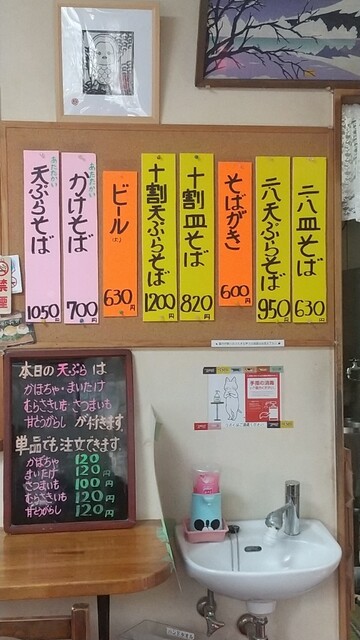 二八皿そば 630円
二八天ぷらそば 950円
そばがき 600円
十割皿そば 820円
十割天ぷらそば 1200円
ビール 630円
あたたかい
かけそば 700円
あたたかい
天ぷらそば 1050円
禁煙
本日の天ぷらは
かぼちゃ・まいたけ
むらさきいも さつまいも
甘とうがらし が付きます。
単品でも注文できます
かぼちゃ 120円
まいたけ 120円
さつまいも 100円
むらさきいも 120円
甘とうがらし 120円
手指の消毒